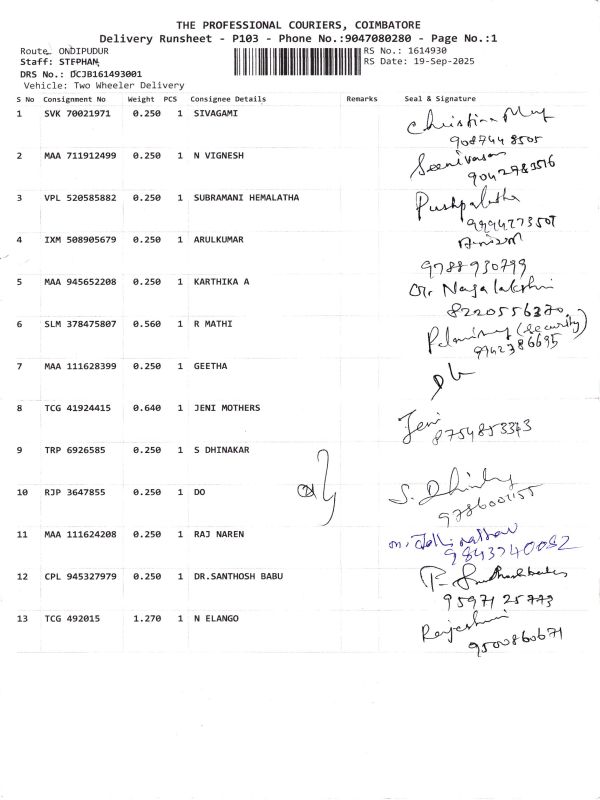 THE PROFESSIONAL COURIERS, COIMBATORE
Delivery Runsheet - P103 - Phone No.:9047080280 - Page No.:1
Route ONDIPUDUR
RS No.: 1614930
Staff: STEPHAN
RS Date: 19-Sep-2025
DRS No.: DCJB161493001
Vehicle: Two Wheeler Delivery
S No Consignment No Weight PCS Consignee Details Remarks Seal & Signature
1 SVK 70021971 0.250 1 SIVAGAMI Christina
2 MAA 711912499 0.250 1 N VIGNESH Seenivasan
9042783516
3 VPL 520585882 0.250 1 SUBRAMANI HEMALATHA Pushpalatha
4 IXM 508905679 0.250 1 ARULKUMAR
9788930799
5 MAA 945652208 0.250 1 KARTHIKA A Nagalakshmi
8220556370
6 SLM 378475807 0.560 1 R MATHI (Security)
9942386695
7 MAA 111628399 0.250 1 GEETHA
8 TCG 41924415 0.640 1 JENI MOTHERS Jeni
8754853343
9 TRP 6926585 0.250 1 S DHINAKAR
10 RJP 3647855 0.250 1 DO S.
11 MAA 111624208 0.250 1 RAJ NAREN
9843740082
12 CPL 945327979 0.250 1 DR.SANTHOSH BABU
95971 25773
13 TCG 492015 1.270 1 N ELANGO
9500860671